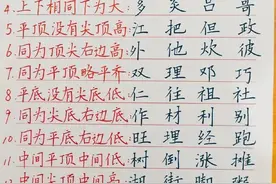 4.上下相同下为大:多 炎 吕 哥
5.平顶没有尖顶高:江 把 但 政
6.同为顶尖右边高:外 他 炊 彼
7.同为平顶略平齐:双 理 邓 巧
8.平底没有尖底低:仁 往 祖 社
9.同为尖底右边低:作 材 利 别
10.同为平底右边低:旺 理 经 跑
11.中间平顶中间低:树 倒 涨 摊
12.中间尖顶中间高:湖 街 脚